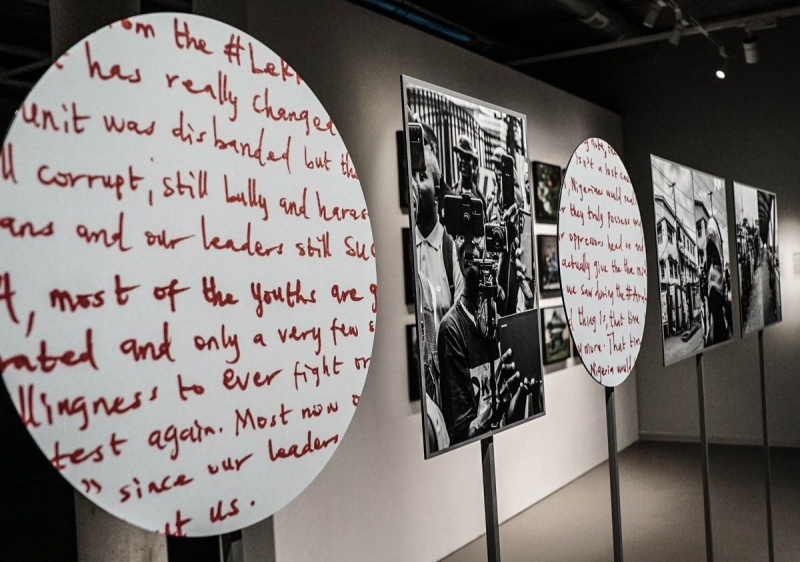 om the #Lekk
has really changed
unit was disbanded but th
ll corrupt, still bully and haras
ans and our leaders still suc
4, most of the youths are g
rated and only a very few s
llingness to ever fight or
test again. Most now
" since our leaders
t us.
isn't a lost ca
, Nigerians would real
r they truly possess an
r oppressors head on and
actually give the the mi
we saw during the #
l thing is, that time
more. That tim
Nigeria would